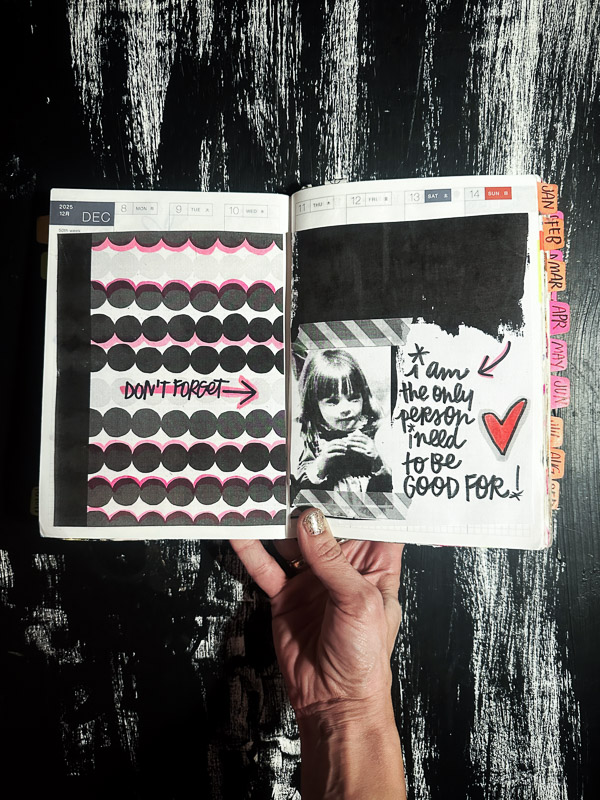 2025
12月
DEC
8 MON 月
9 TUE 火
10 WED 水
11 THU 木
12 FRI 金
13 SAT 土
14 SUN 日
50th week
DON'T FORGET
*i am
the only
person
i need
to be
GOOD FOR!
JAN
FEB
MAR
APR
MAY
JUN
AUG